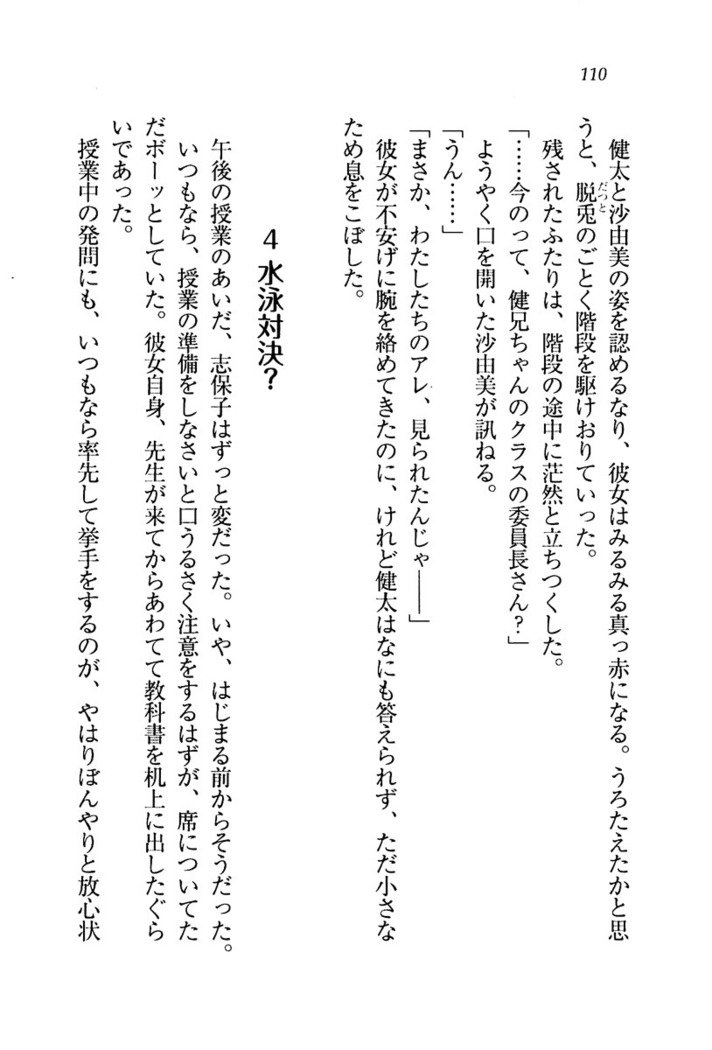 110
健太と沙由美の姿を認めるなり、彼女はみるみる真っ赤になる。うろたえたかと思
うと、脱兎のごとく階段を駆けおりていった。
だつと
残されたふたりは、階段の途中に茫然と立ちつくした。
「……今のって、健兄ちゃんのクラスの委員長さん？」
ようやく口を開いた沙由美が訊ねる。
「うん……」
「まさか、わたしたちのアレ、見られたんじゃ――」
彼女が不安げに腕を絡めてきたのに、けれど健太はなにも答えられず、ただ小さな
ため息をこぼした。
4 水泳対決？
午後の授業のあいだ、志保子はずっと変だった。いや、はじまる前からそうだった。
いつもなら、授業の準備をしなさいと口うるさく注意をするはずが、席についてた
だボーッとしていた。彼女自身、先生が来てからあわてて教科書を机上に出したぐら
いであった。
授業中の発問にも、いつもなら率先して挙手をするのが、やはりぼんやりと放心状